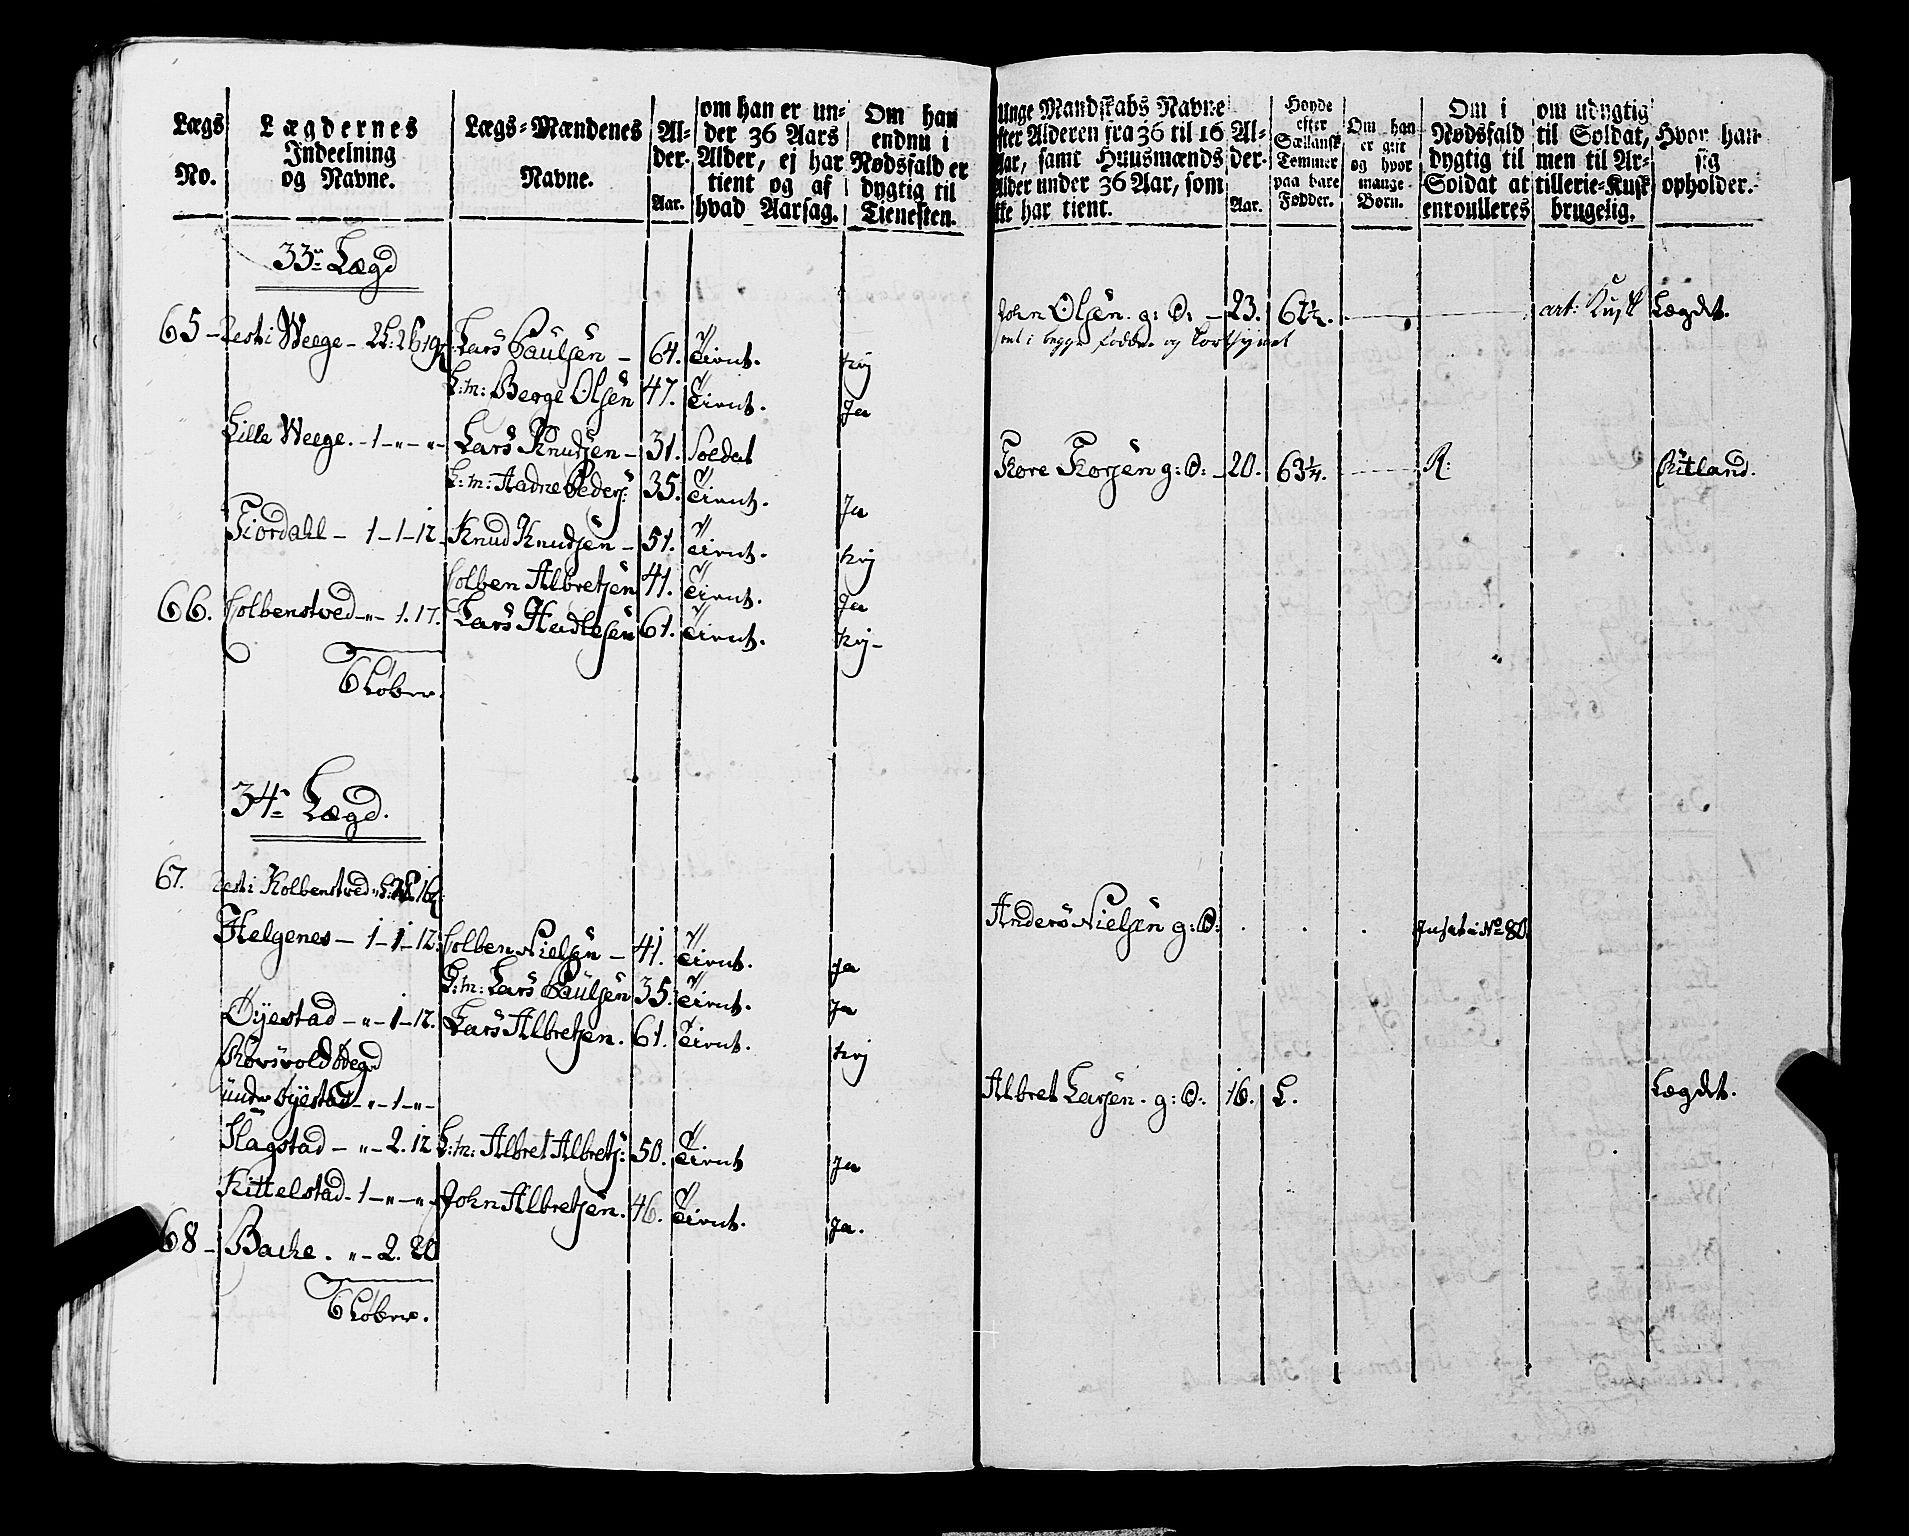 Lægs No.
Lægdernes Indeelning og Navne.
Lægs-Mændenes Navne.
Al-der. Aar.
om han er un-der 36 Aars Alder, ej har tient og af hvad Aarsag.
Om han endnu i Nødsfald er dygtig til Tienesten.
unge Mandskabs Navne
efter Alderen fra 36 til 16
Aar, samt Huusmænds
Alder under 36 Aar, som
ike har tient.
Al-der. Aar.
Høyde efter Siællansk Tommer paa bare Fødder.
Om han er gift og hvor mange Børn.
Om i Nødsfald dygtig til Soldat at enroulleres
om udygtig til Soldat, men til Ar-tillerie-Kusk brugelig.
Hvor han sig opholder.
33te Lægd
65 – Resti Weege – Lars Paulsen – 64. Tient. Nej
John Olsen. g: S: – 23. 62½. art: Kusk Lægdet.
i begge Fødder og kortsynet
L:m: Berge Olsen 47. Tient. Ja
Lille Weege. – 1 – „ – „ – Lars Knudsen – 31. Soldat
Tore Torsen g: S: – 20. 63¼. R: Ritland.
L:m: Aadne Peders: 35. Tient. Ja
Fiordahl – 1 – 1 – 12. Knud Knudsen – 51. Tient. Nej
Colben Albretsen 41. Tient. Ja
66. Colbenstved – „ – 1. 17. Lars Hadlesen 61. Tient. Nej –
6 Løber.
34te Lægd.
67. Resti Kolbenstved
Helgenes – 1 – 1 – 12. Colben Nielsen – 41. Tient. Ja
Anders Nielsen g: S: Indsat i No 80.
L:m: Lars Paulsen 35. Tient. Ja
Øyestad – „ – 1 – 12. Lars Albretsen. 61. Tient. Nej
Rørsvold ødegd
under Øyestad – „ – 1 – „ –
Albret Larsen. g: S: 16. L. Lægdet.
Hagstad – „ – 2. 12 L:m: Albret Albrets: 50. Tient Ja
Kittelstad – 1 – „ – „ John Albretsen. 46. Tient. Ja.
68 – Backe. „ – 2. 20
6 Løber.